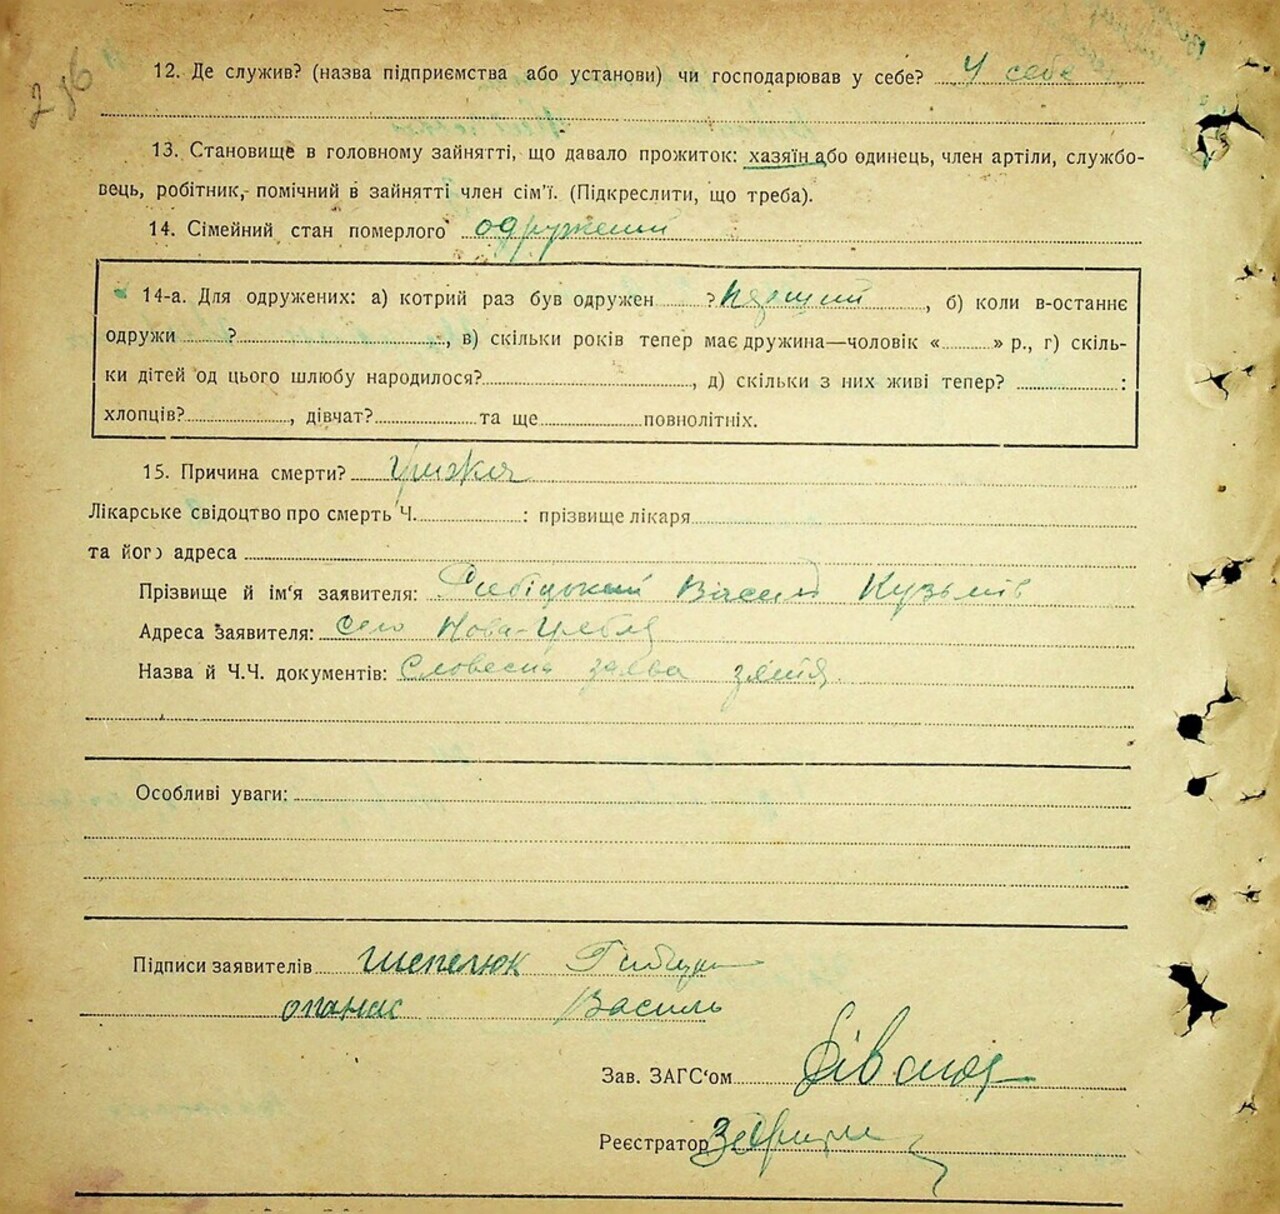 286
12. Де служив? (назва підприємства або установи) чи господарював у себе? У себе
13. Становище в головному зайнятті, що давало прожиток: хазяїн або одинець, член артілі, службо-
вець, робітник, помічний в зайнятті член сім'ї. (Підкреслити, що треба).
14. Сімейний стан померлого одружений
14-а. Для одружених: а) котрий раз був одружен ? перший, б) коли в-останнє
одружи ?, в) скільки років тепер має дружина—чоловік « » р., г) скіль-
ки дітей од цього шлюбу народилося?, д) скільки з них живі тепер? :
хлопців?, дівчат? та ще повнолітніх.
15. Причина смерти? Грижа
Лікарське свідоцтво про смерть Ч. : прізвище лікаря
та його адреса
Прізвище й ім'я заявителя: Василь Кузьмів
Адреса заявителя: Село Нова-Гребля
Назва й Ч.Ч. документів: Словесна заява зятя
Особливі уваги:
Підписи заявителів Шепелюк
опанас Василь
Зав. ЗАГС'ом
Реєстратор